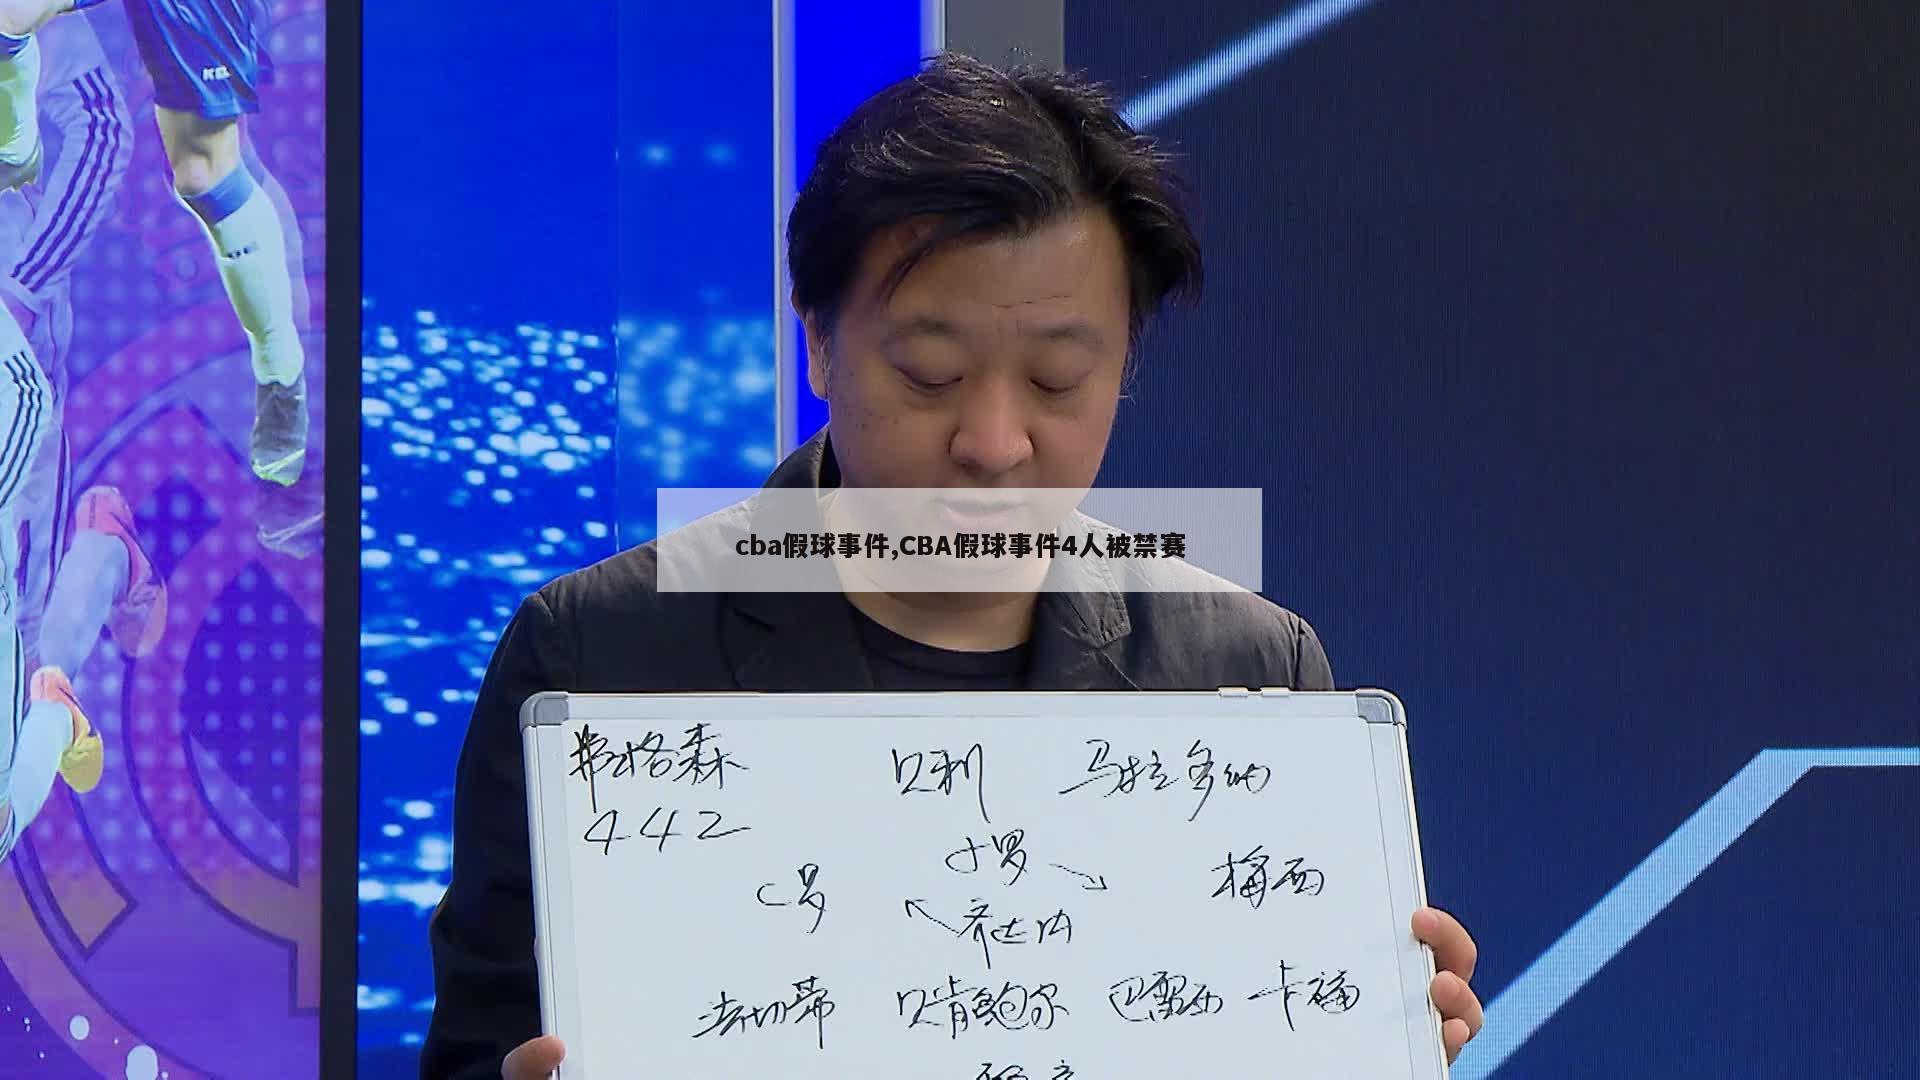 cba假球事件,CBA假球事件4人被禁赛
弗格森 贝利 马拉多纳
442
小罗
C罗 梅西
齐达内
法切蒂 贝肯鲍尔 巴雷西 卡福